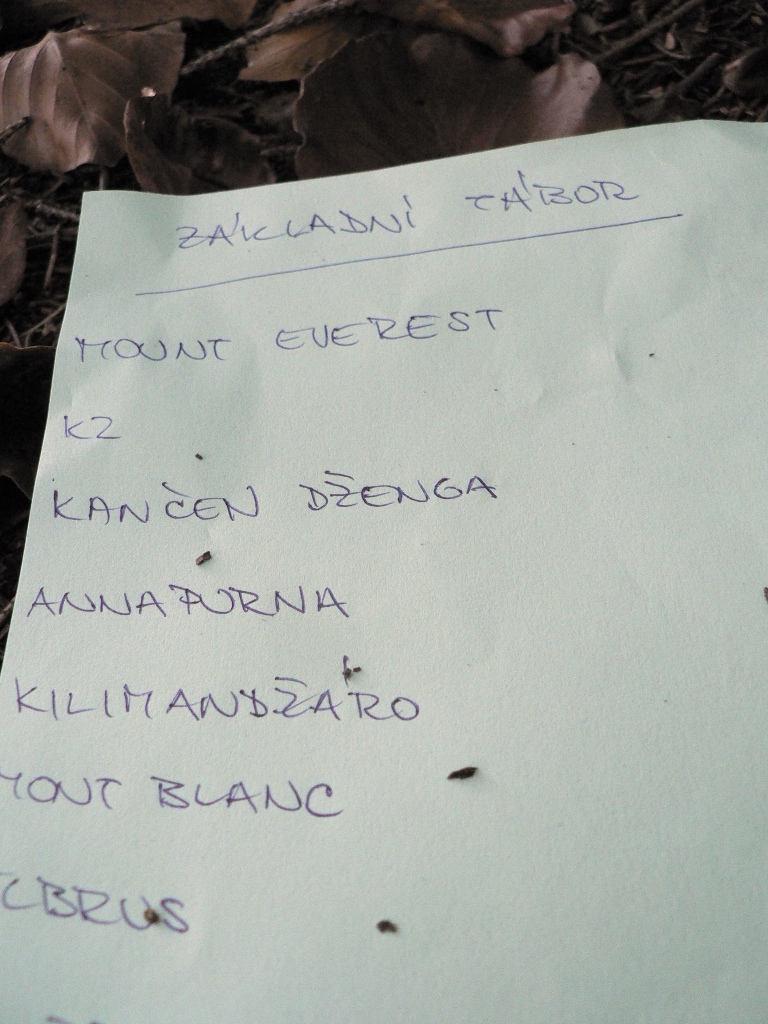 ZÁKLADNÍ TÁBOR
MOUNT EVEREST
K2
KANČEN DŽENGA
ANNAPURNA
KILIMANDŽÁRO
MONT BLANC
ELBRUS